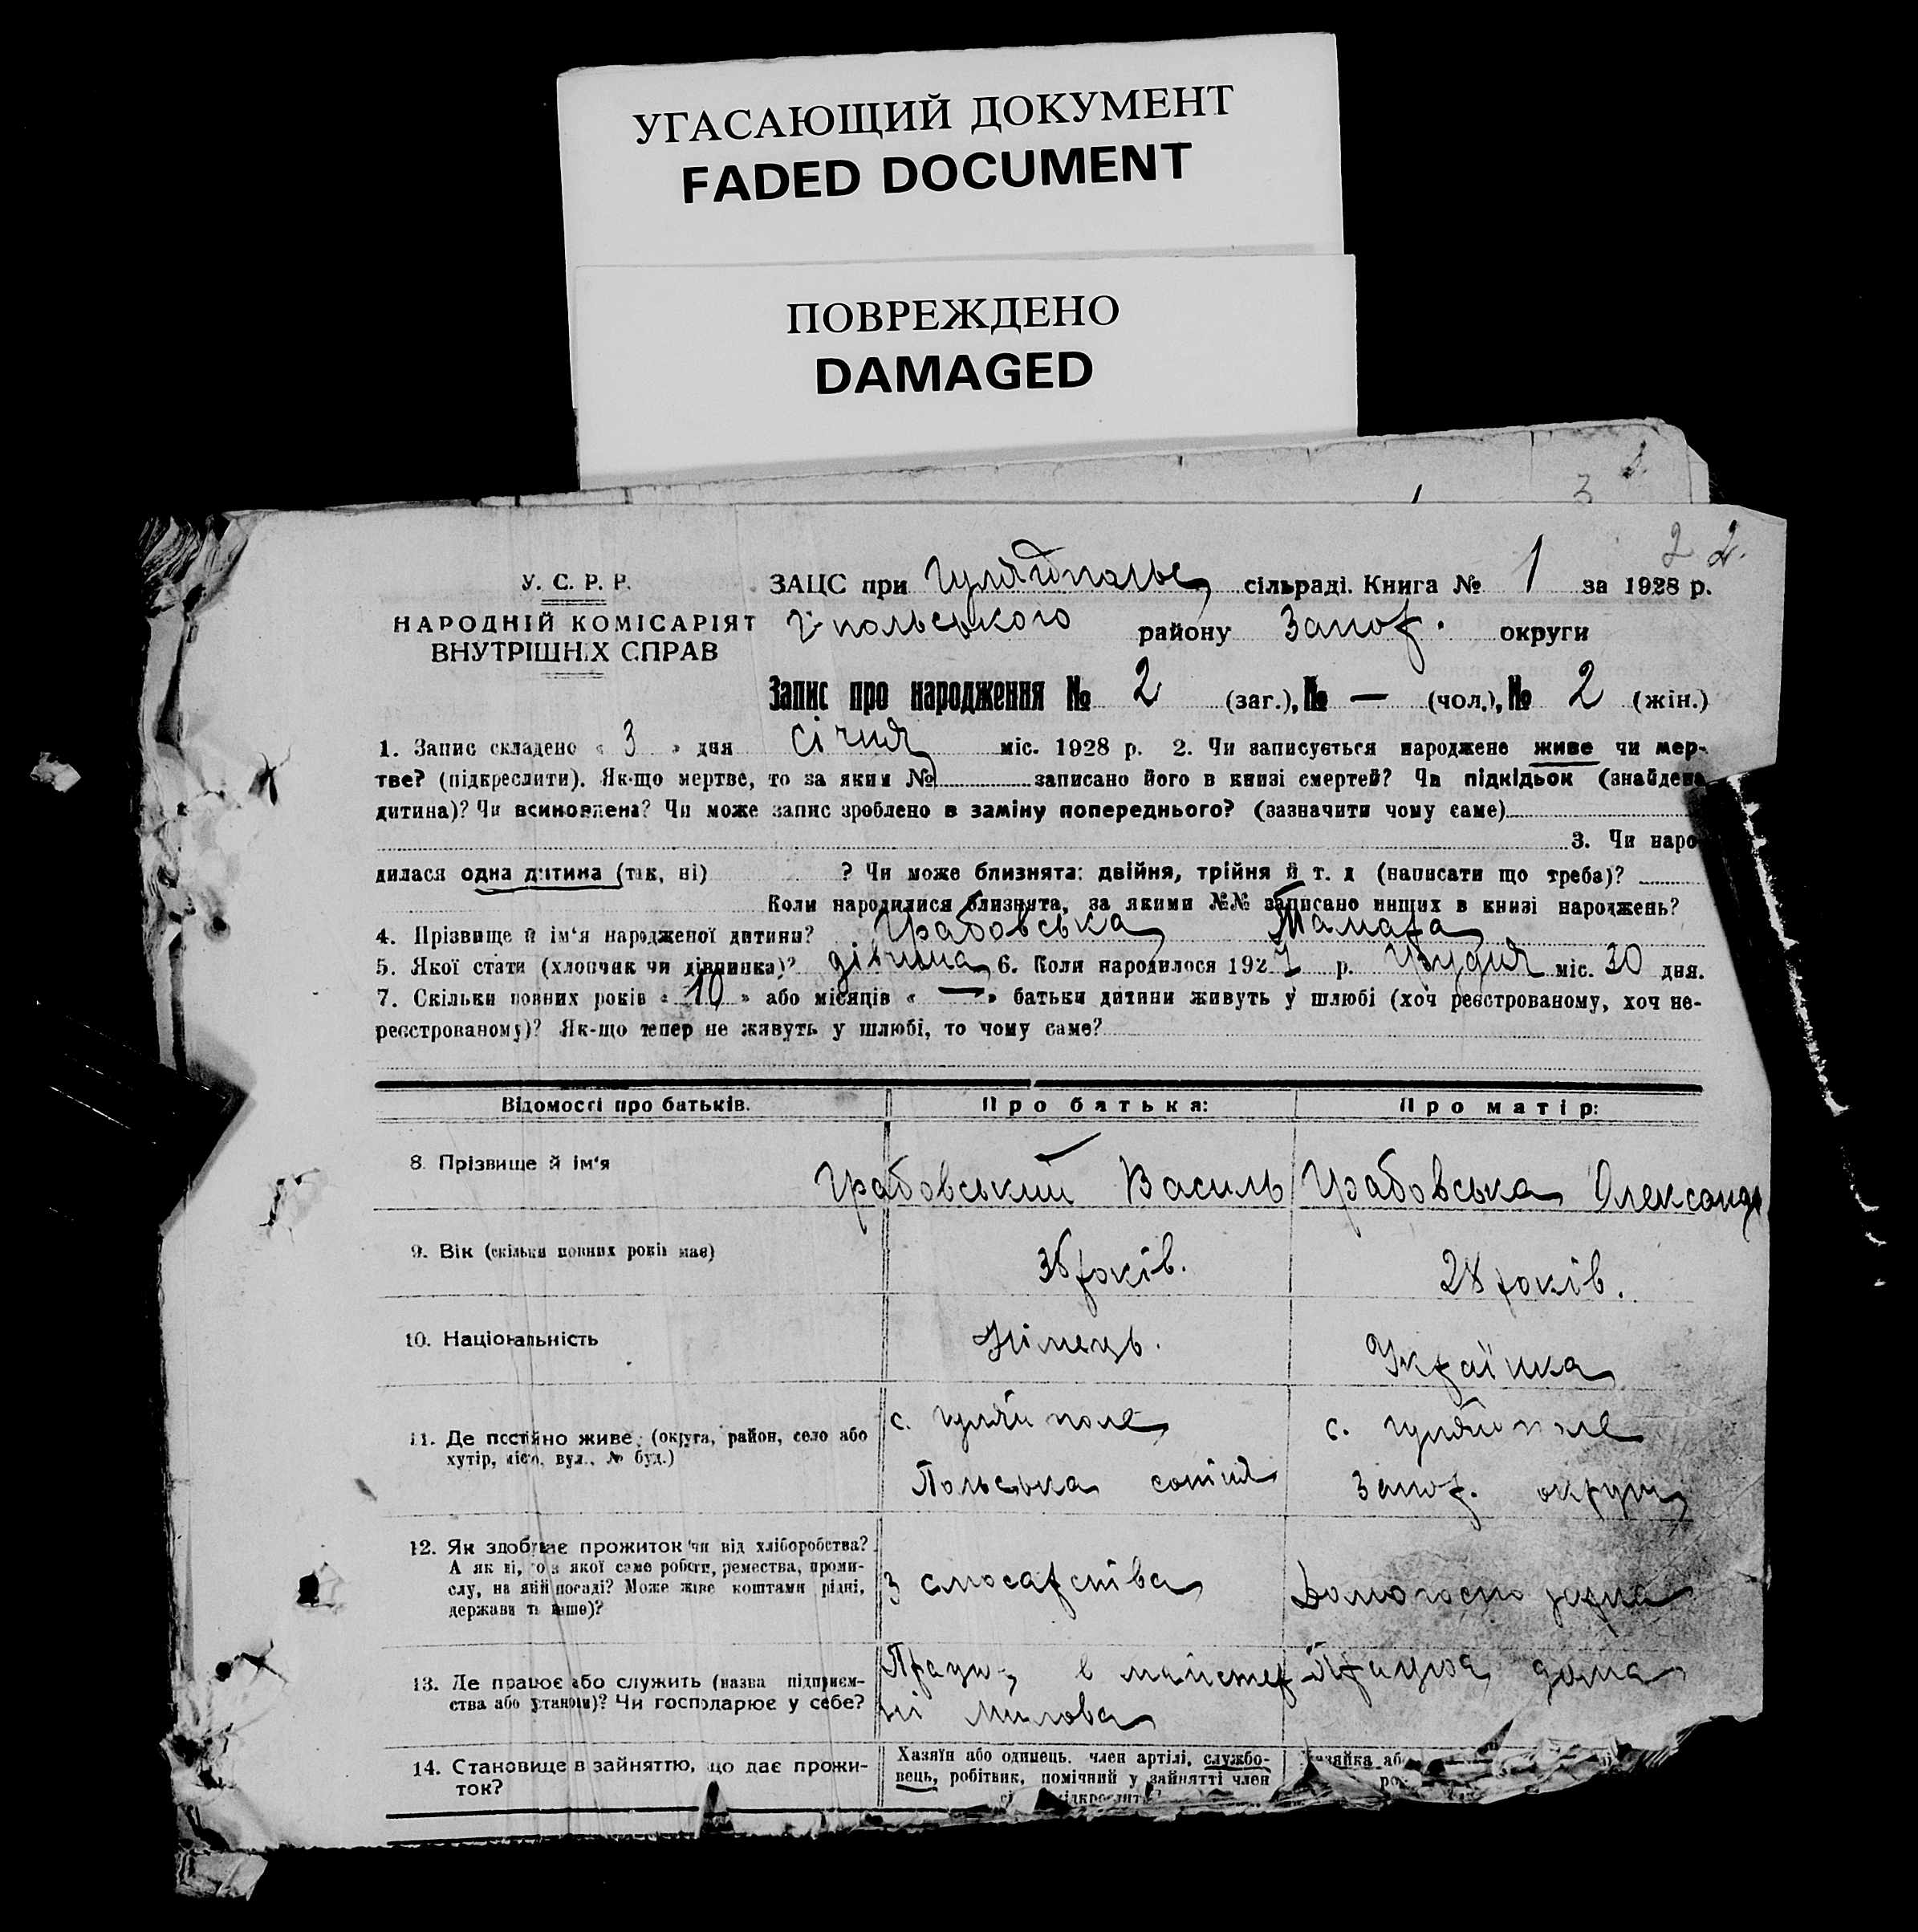 УГАСАЮЩИЙ ДОКУМЕНТ
FADED DOCUMENT
ПОВРЕЖДЕНО
DAMAGED
3
2 2.
У. С. Р. Р.
НАРОДНІЙ КОМІСАРІЯТ
ВНУТРІШНІХ СПРАВ
ЗАЦС при Гуляйпольс сільраді. Книга № 1 за 1928 р.
Г-польського району Запор. округи
Запис про народження № 2 (заг.), № — (чол.), № 2 (жін.)
1. Запис складено « 3 » дня січня міс. 1928 р. 2. Чи записується народжене живе чи мер-
тве? (підкреслити). Як-що мертве, то за яким № записано його в книзі смертей? Чи підкідьок (знайдена
дитина)? Чи всиновлена? Чи може запис зроблено в заміну попереднього? (зазначити чому саме)
3. Чи наро-
дилася одна дитина (так, ні) ? Чи може близнята: двійня, трійня й т. д (написати що треба)?
Коли народилися близнята, за якими №№ записано инших в книзі народжень?
4. Прізвище й ім'я народженої дитини? Грабовська Тамара
5. Якої стати (хлопчик чи дівчинка)? дівчина 6. Коли народилося 1927 р. Грудня міс. 30 дня.
7. Скільки повних років « 10 » або місяців « — » батьки дитини живуть у шлюбі (хоч реєстрованому, хоч не-
реєстрованому)? Як-що тепер не живуть у шлюбі, то чому саме?
Відомості про батьків. Про батька: Про матір:
8. Прізвище й ім'я Грабовський Василь Грабовська Олександ
9. Вік (скільки повних років має) 36 років. 28 років.
10. Національність Німець. Українка
11. Де постійно живе (округа, район, село або
хутір, місто, вул., № буд.)
с. Гуляй поле
Польська сотня
с. Гуляйполе
Запор. округи
12. Як здобуває прожиток чи від хліборобства?
А як ні, то з якої саме роботи, ремества, проми-
слу, на якій посаді? Може живе коштами рідні,
держави то інше)?
з слюсарства
Домогоспо
13. Де працює або служить (назва підприєм-
ства або установи)? Чи господарює у себе?
Працює в майстер
ні
Працює дома
14. Становище в зайняттю, що дає прожи-
ток?
Хазяїн або одинець, член артілі, службо-
вець, робітник, помічний у зайнятті член
Хазяйка або